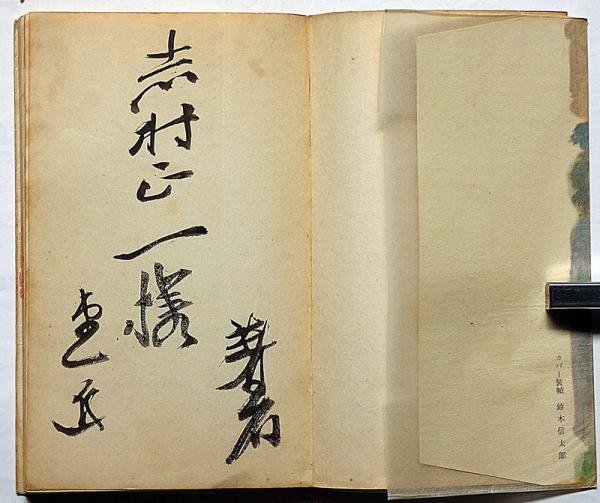 カバー装幀 鈴木信太郎
志村正一様
著者